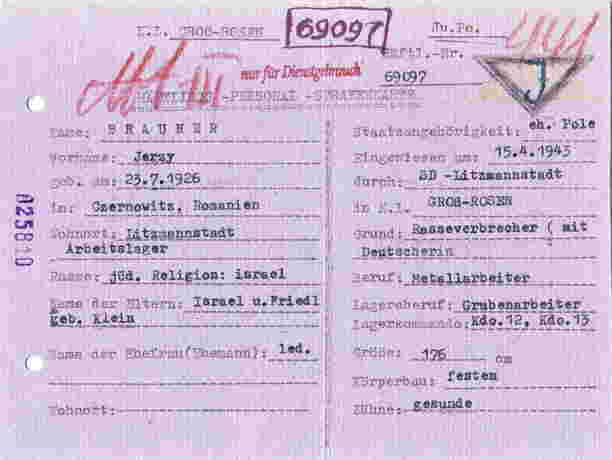 K.L. GROß-ROSEN
69097
Ju.Po.
Häftl.-Nr.
69097
nur für Dienstgebrauch
HÄFTLINGS-PERSONAL-STRAFENKARTE
Name: BRAUNER
Vorname: Jerzy
geb. am: 23.7.1926
in: Czernowitz, Romanien
Wohnort: Litzmannstadt
Arbeitslager
Rasse: jüd. Religion: israel
Name der Eltern: Israel u.Friedl
geb. Klein
Name der Ehefrau(Ehemann): led.
Wohnort:
Staatsangehörigkeit: eh. Pole
Eingewiesen am: 15.4.1943
durch: SD -Litzmannstadt
in K.L. GROß-ROSEN
Grund: Rasseverbrecher ( mit
Deutscherin
Beruf: Metallarbeiter
Lagerberuf: Grubenarbeiter
Lagerkommando: Kdo.12, Kdo.13
Größe: 176 cm
Körperbau: festen
Zähne: gesunde
J
025810